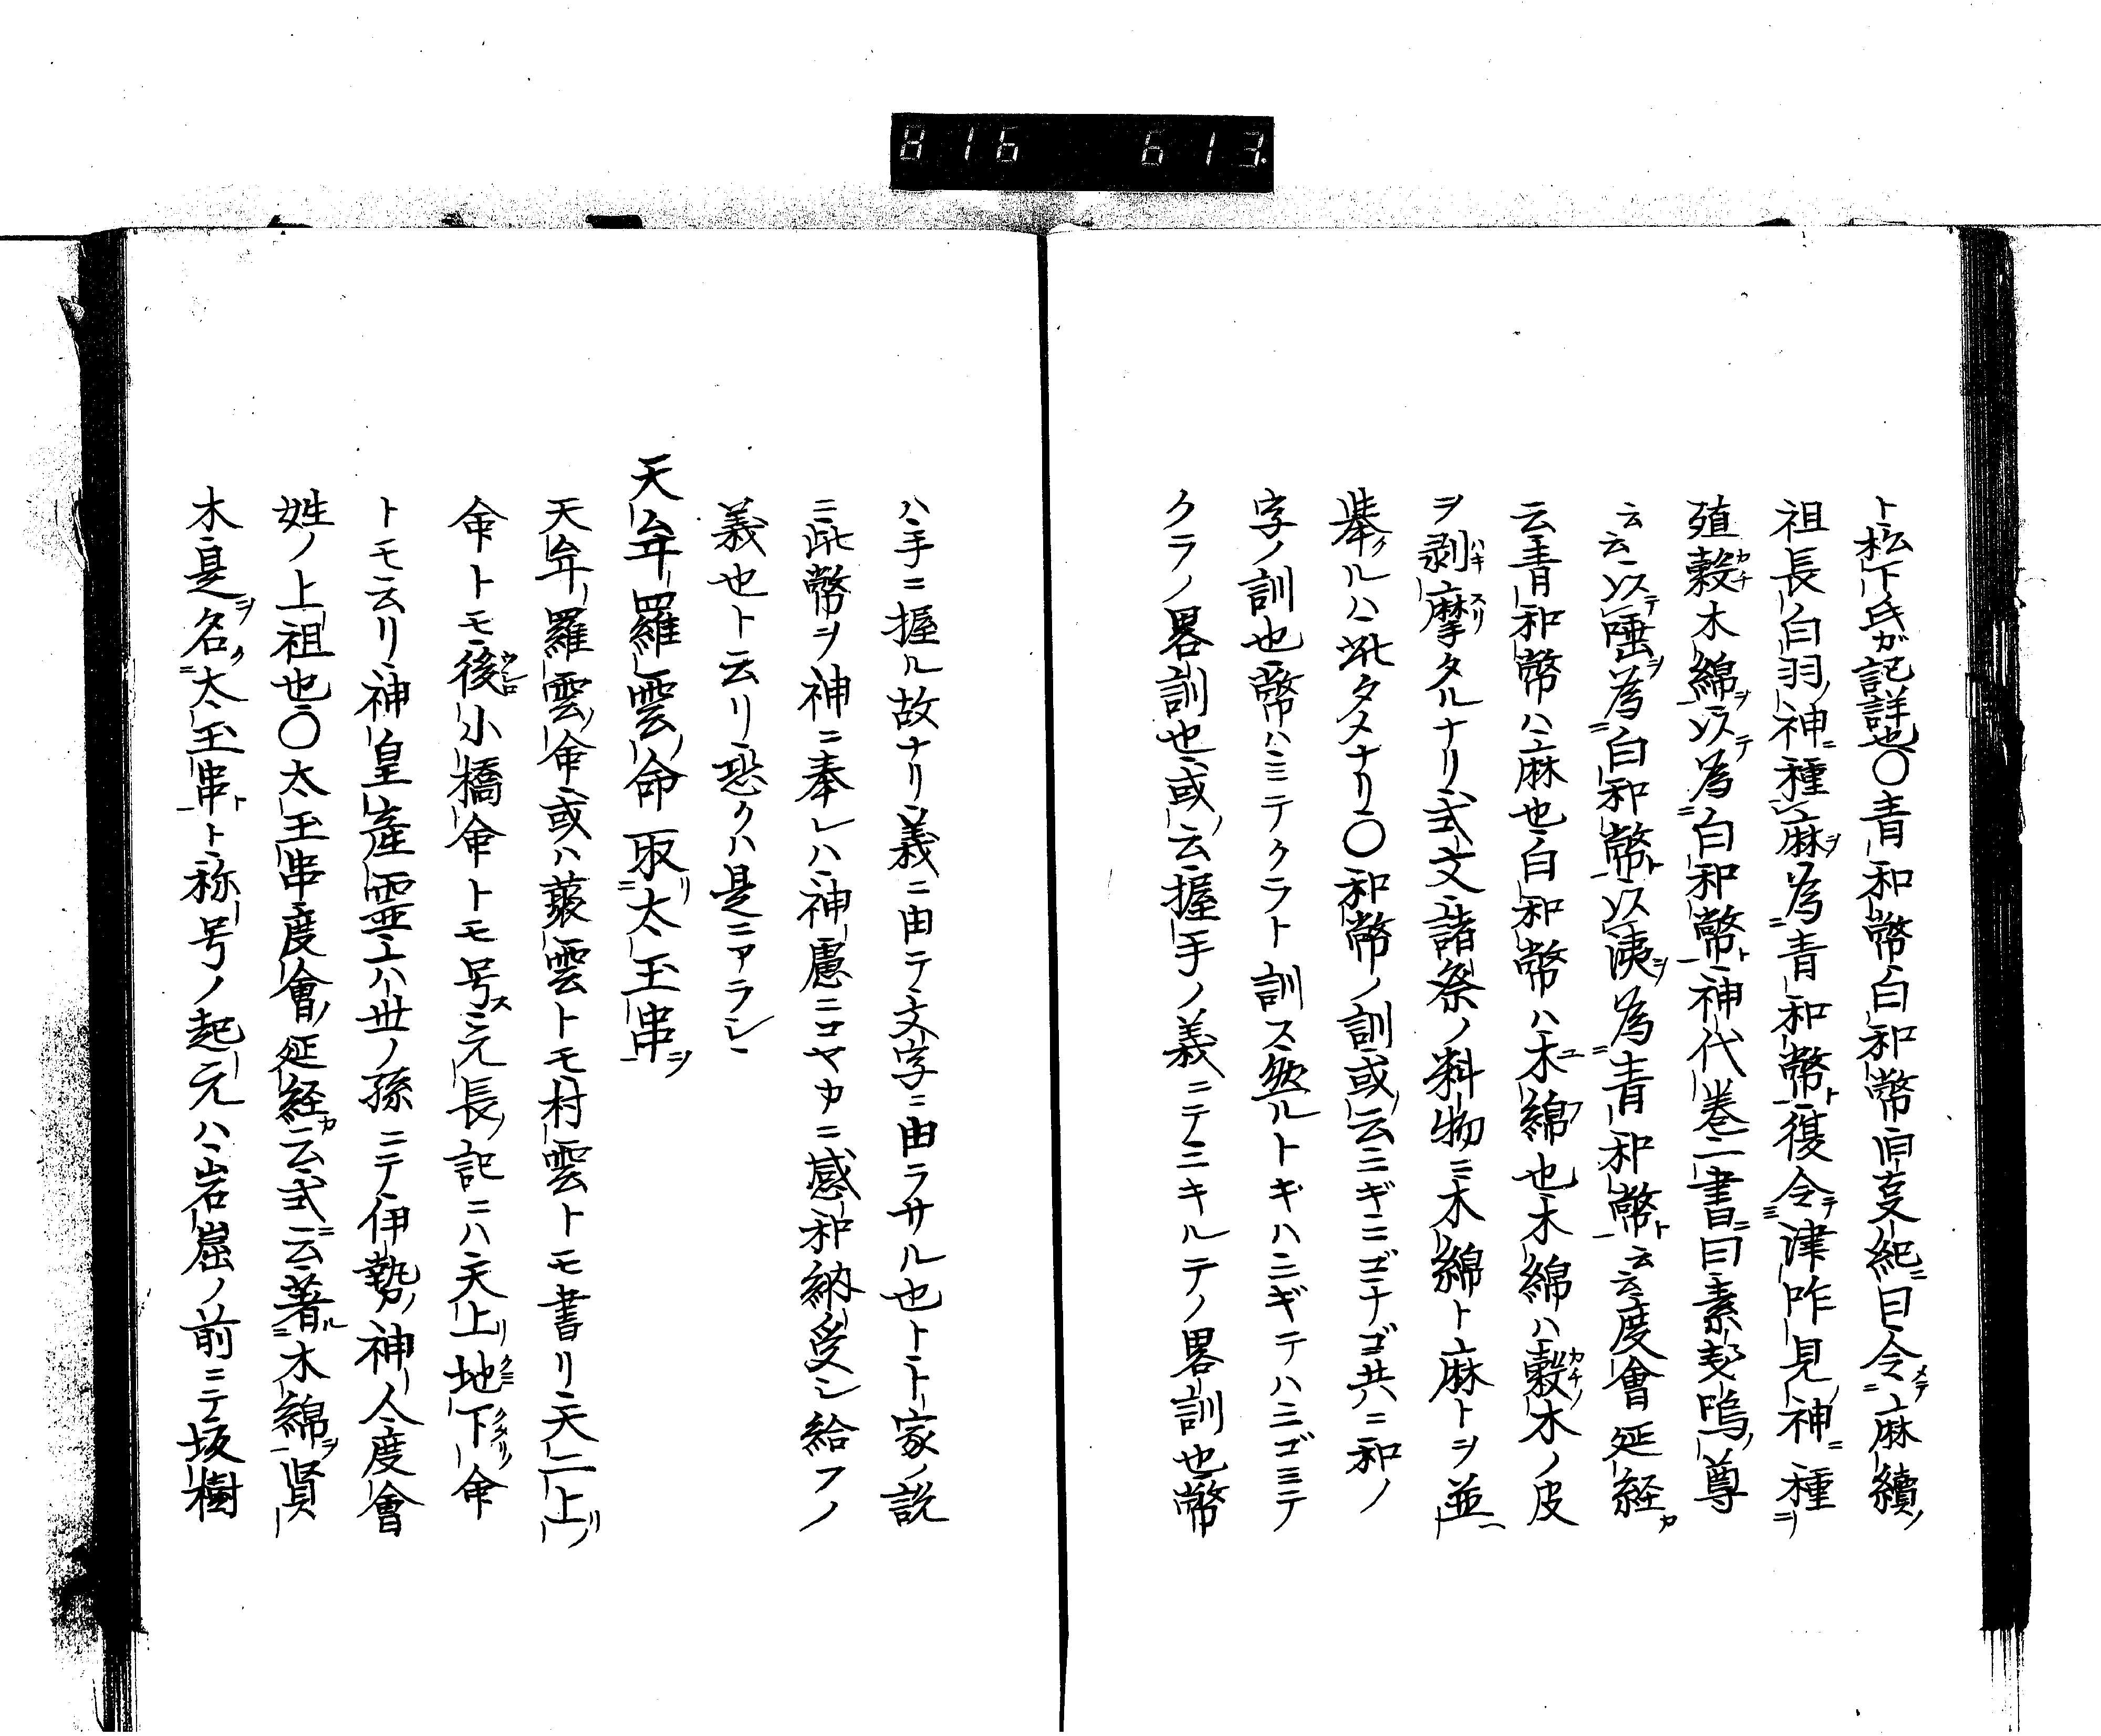 816 613.
ト松下氏ガ記詳也〇青和幣白和幣旧事紀曰令麻續ノ
祖長白羽神種麻為青和幣復令津咋見神種
殖穀木綿以為白和幣神代巻一書曰素戔嗚尊
云云以唾為白和幣以洟為青和幣云云度會延経
云青和幣ハ麻也白和幣ハ木綿也木綿ハ穀木ノ皮
ヲ剥摩タルナリ式文諸祭ノ料物ニ木綿ト麻トヲ並
挙ルハ此タメナリ〇和幣ノ訓或云ニギニゴナゴ共ニ和ノ
字ノ訓也幣ハミテクラト訓ス然ルトキハニギテハニゴミテ
クラノ畧訓也或云握手ノ義ニテニキルテノ畧訓也幣
ハ手ニ握ル故ナリ義ニ由テ文字ニ由ラサル也ト卜家ノ説
ニ此幣ヲ神ニ奉レハ神慮ニコヤカニ感和納受シ給フノ
義也ト云リ恐クハ是ニアラシ
天牟羅雲命取太玉串
天牟羅雲命或ハ叢雲トモ村雲トモ書リ天二上
命トモ後小橋命トモ号ス元長記ニハ天上地下命
トモ云リ神皇産霊ハ世ノ孫ニテ伊勢ノ神人度會
姓ノ上祖也〇太玉串度會延経云式云著木綿賢
木是名太玉串ト称号ノ起元ハ岩窟ノ前ニテ坂樹